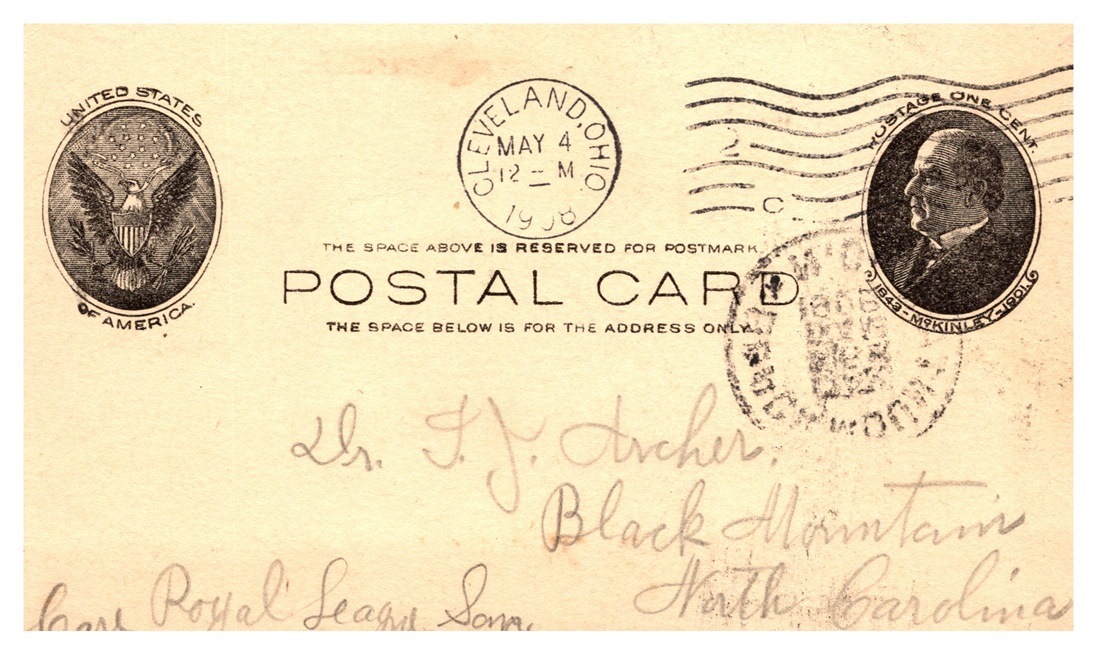 UNITED STATES
OF AMERICA.
CLEVELAND, OHIO.
MAY 4
12 - M
1908
2
C
POSTAGE ONE CENT.
1843 - McKINLEY - 1901.
THE SPACE ABOVE IS RESERVED FOR POSTMARK
POSTAL CARD
THE SPACE BELOW IS FOR THE ADDRESS ONLY.
Dr. T. J. Archer.
Black Mountain
North Carolina
Care Royal League San.